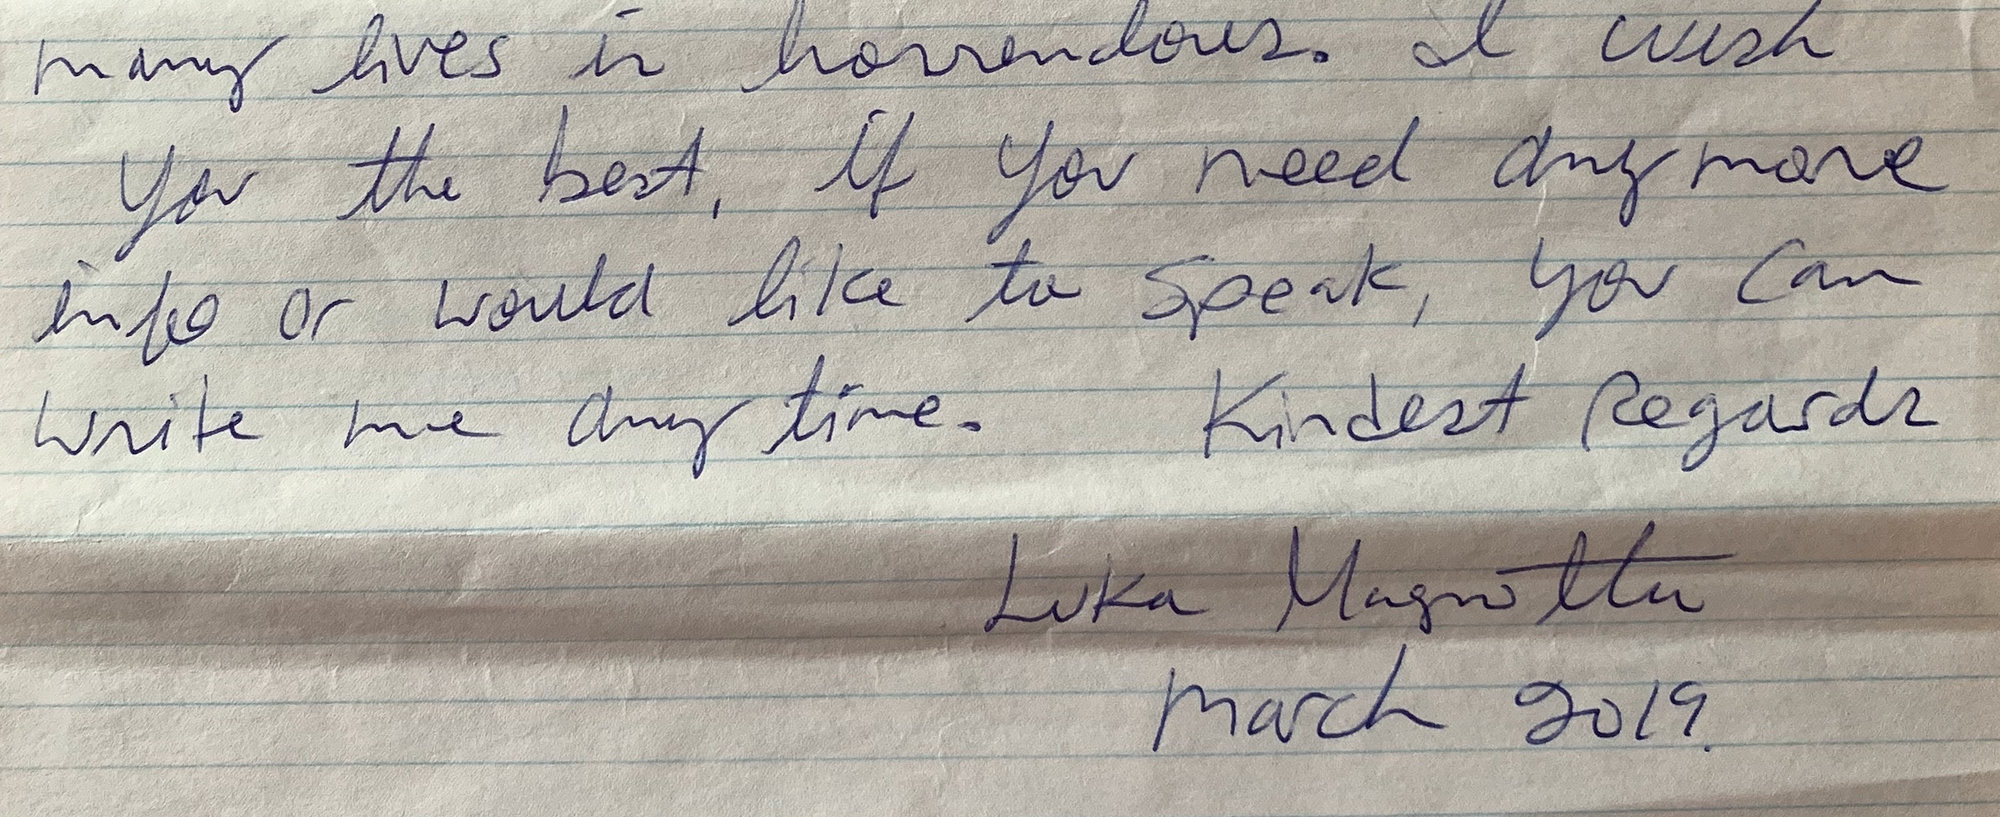 many lives is horrendous. I wish
you the best, if you need anymore
info or would like to speak, you can
write me anytime. Kindest Regards
Luka Magnotta
March 2019.